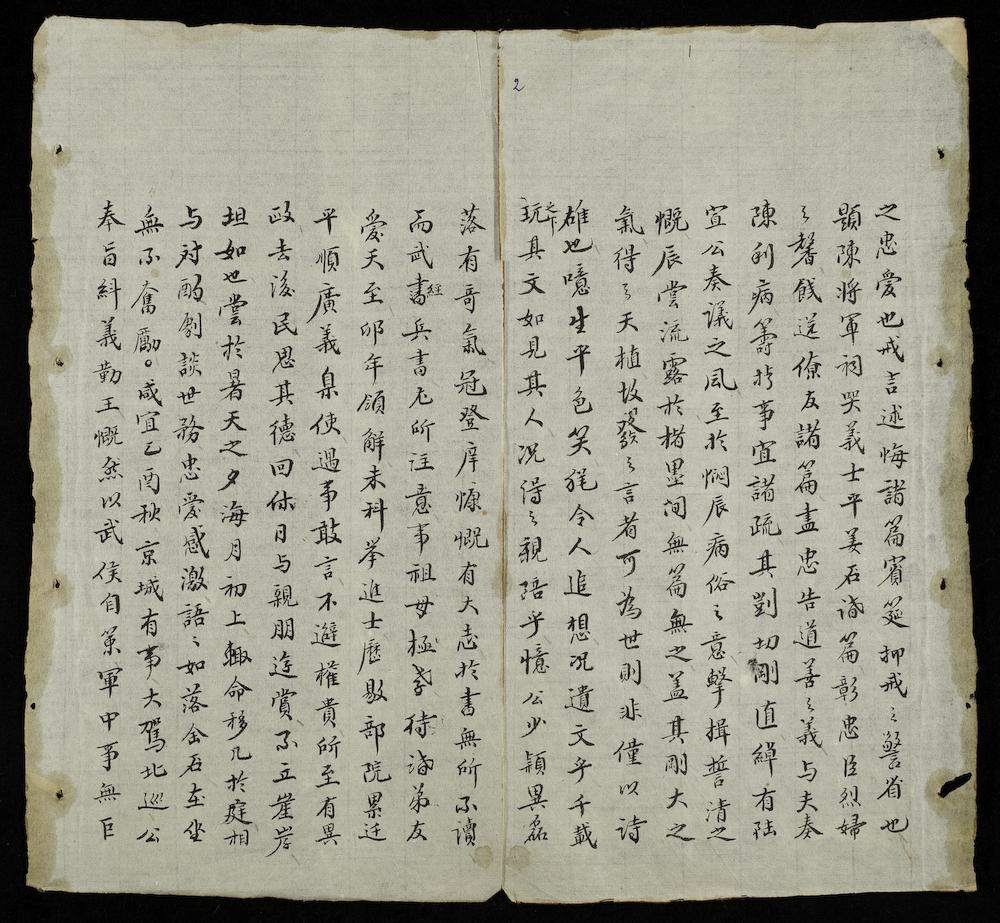 2
之忠愛也戒言述悔諸篇賓筵抑戒之警省也
題陳將軍祠哭義士平姜石諸篇彰忠臣烈婦
之馨餞送僚友諸篇盡忠告道善之義与夫奏
陳利病籌於事宜諸疏其剴切剛直綽有陸
宣公奏議之風至於憫辰病俗之意擊揖誓清之
慨辰嘗流露於楮墨间無篇無之盖其剛大之
氣得之天植故發之言者可為世則非僅以詩
雄也噫生平色笑猶令人追想况遺文乎千載之下
玩其文如見其人况得之親陪乎憶公少穎異磊
落有哥氣冠登庠慷慨有大志於書無所不讀
而武經書兵書尤所注意事祖母極孝待諸弟友
愛天至卯年領解未科举進士歷敭部院累迁
平順廣義臬使過事敢言不避權貴所至有異
政去後民思其德回休日与親朋遊賞不立崖岸
坦如也嘗於暑天之夕海月初上輙命移几於庭相
与討酌劇談世務忠愛感激語之如落金石在坐
無不奮勵。咸宜乙酉秋京城有事大駕北巡公
奉旨糾義勤王慨然以武侯自策軍中事無巨